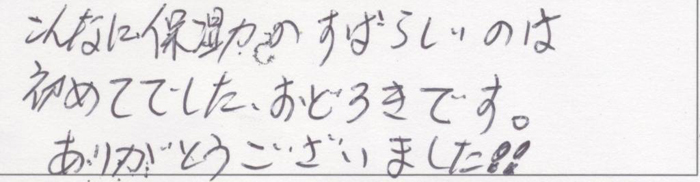 こんなに保湿力のすばらしいのは
初めてでした、おどろきです。
ありがとうございました!!